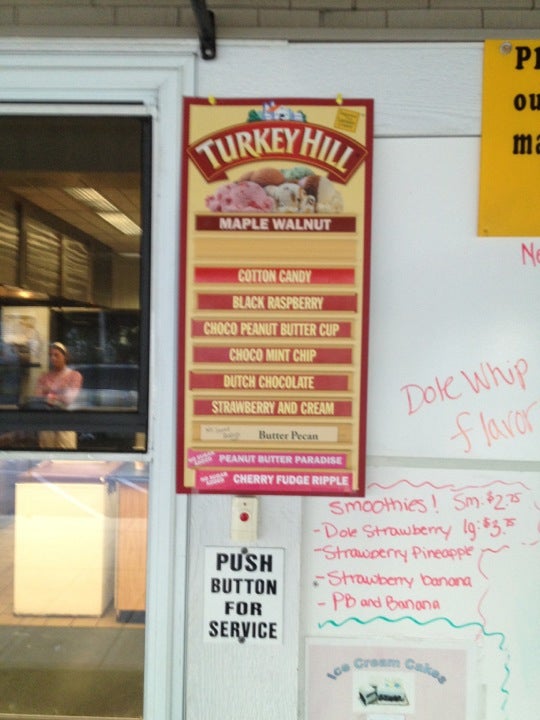 TURKEY HILL
MAPLE WALNUT
COTTON CANDY
BLACK RASPBERRY
CHOCO PEANUT BUTTER CUP
CHOCO MINT CHIP
DUTCH CHOCOLATE
STRAWBERRY AND CREAM
Butter Pecan
NO SUGAR ADDED PEANUT BUTTER PARADISE
NO SUGAR ADDED CHERRY FUDGE RIPPLE
PUSH
BUTTON
FOR
SERVICE
Pl
ou
ma
Ne
Dole Whip
flavor
Smoothies! Sm: $2.75
- Dole Strawberry lg: $3.75
- Strawberry Pineapple
- Strawberry banana
- PB and Banana
Ice Cream Cakes